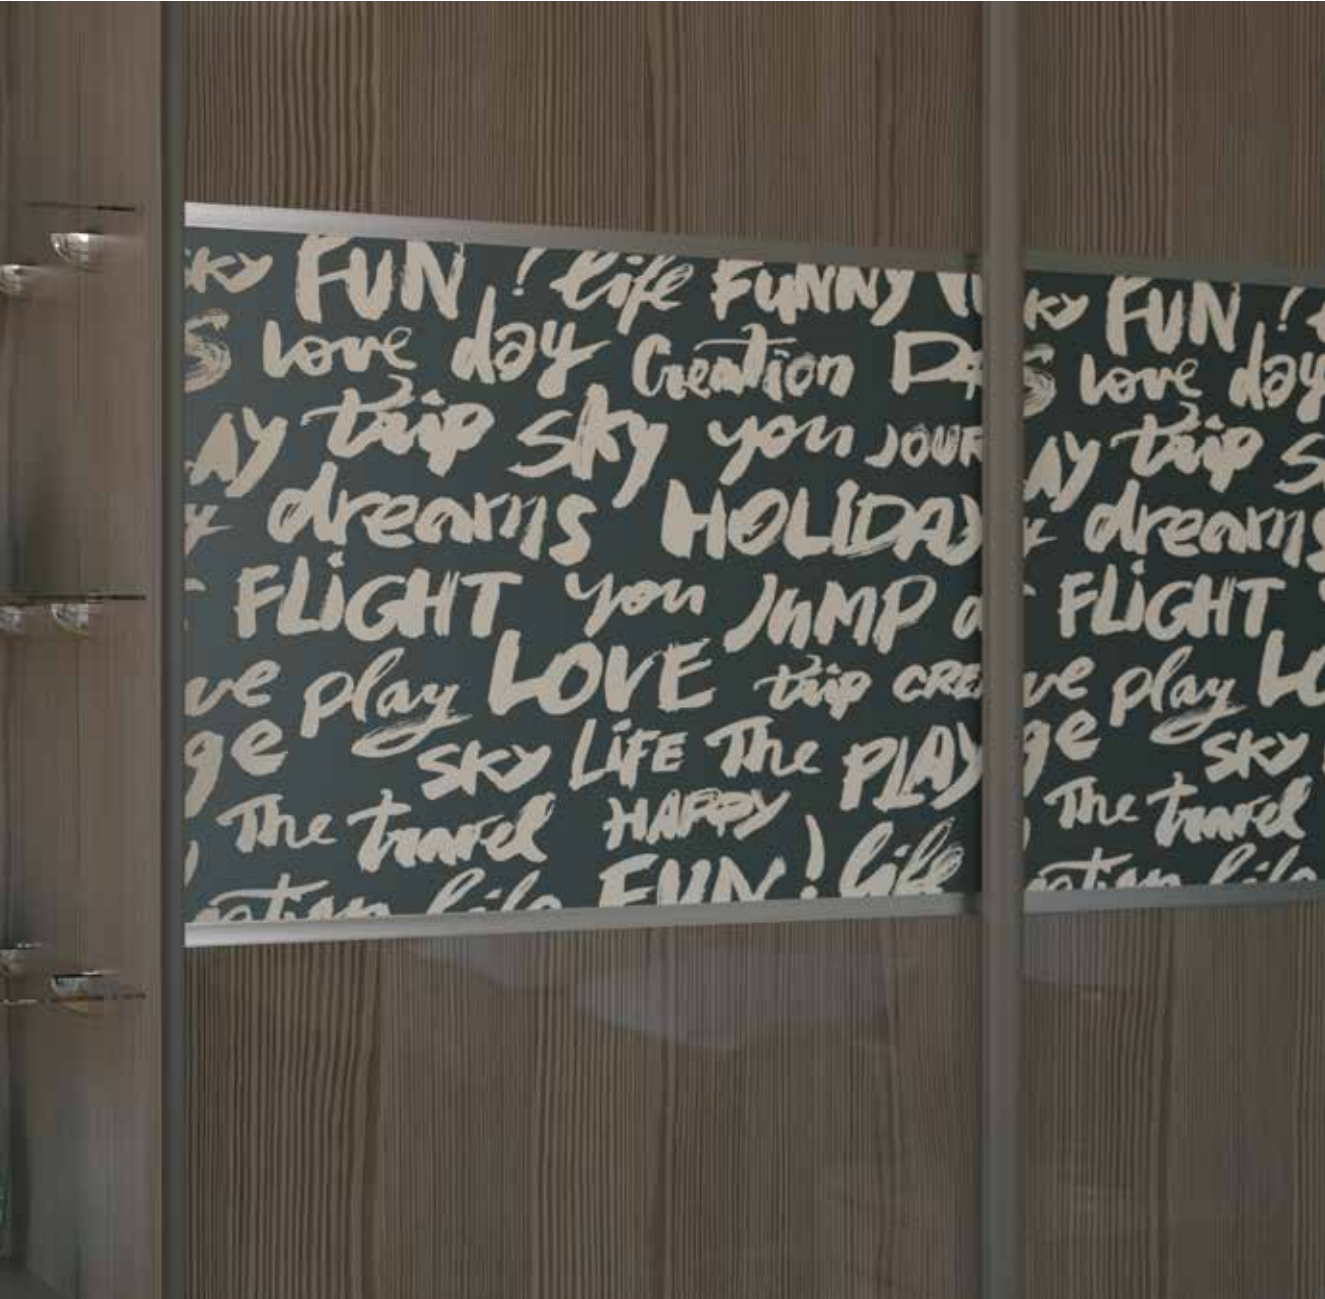 SKY FUN ! life FUNNY
love day Creation
trip sky you JOUR
dreams HOLIDAY
FLiGHT you JuMP
ve play LOVE trip CREA
ge SKY LiFE The PLAY
The travel HAPPY
life FUN ! life
KY FUN !
S love day
AY trip S
dreams
FLiGHT
ve play LO
ge SKY
The travel
life